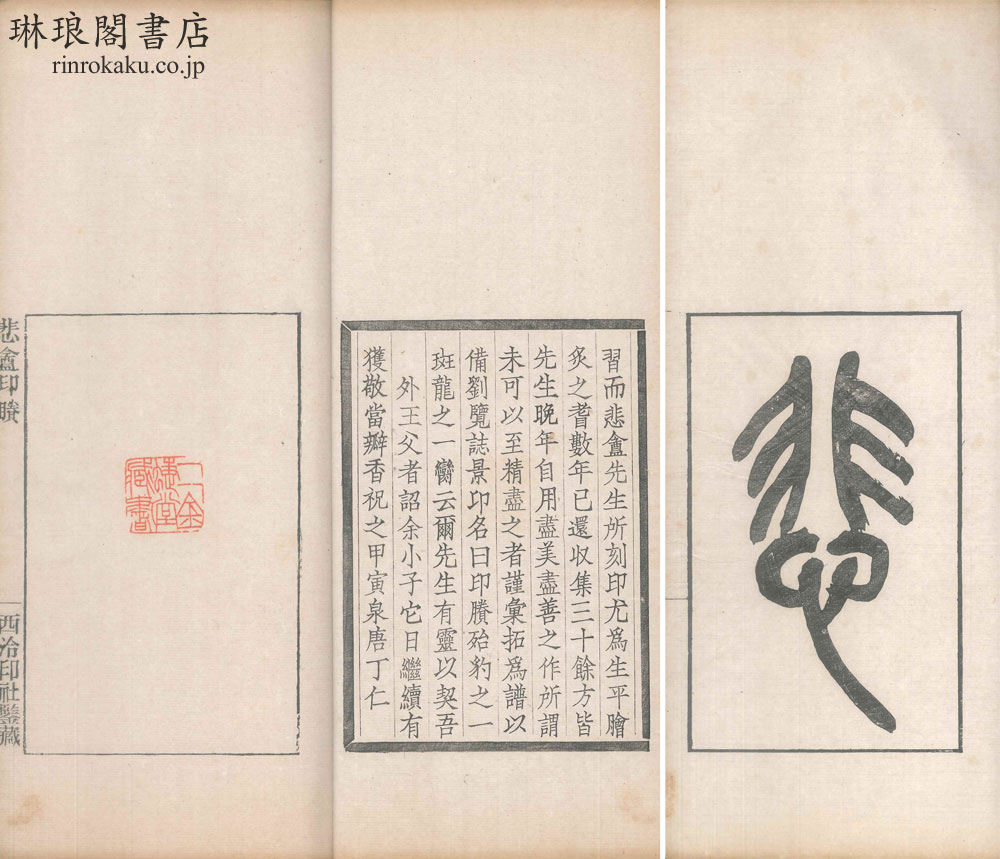 琳琅閣書店
rinrokaku.co.jp
悲
習而悲盦先生所刻印尤爲生平膾
炙之耆數年已還收集三十餘方皆
先生晚年自用盡美盡善之作所謂
未可以至精盡之者謹彙拓爲譜以
備劉覽誌景印名曰印賸殆豹之一
斑龍之一臠云爾先生有靈以契吾
外王父者詔余小子它日繼續有
獲敬當瓣香祝之甲寅泉唐丁仁
二金
蜨堂
臧書
悲盦印賸
西泠印社鑒藏